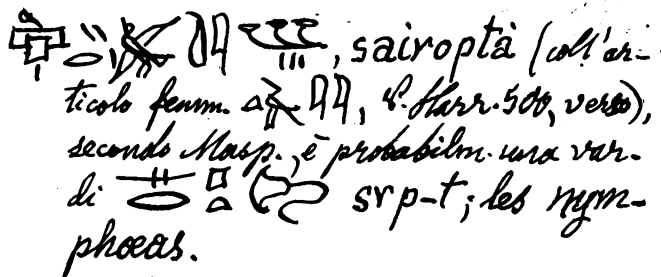 , sairoptà (coll'ar-
ticolo femm. , P. Harr. 500, verso),
secondo Masp., è probabilm. una var.
di srp-t; les nym-
phœas.